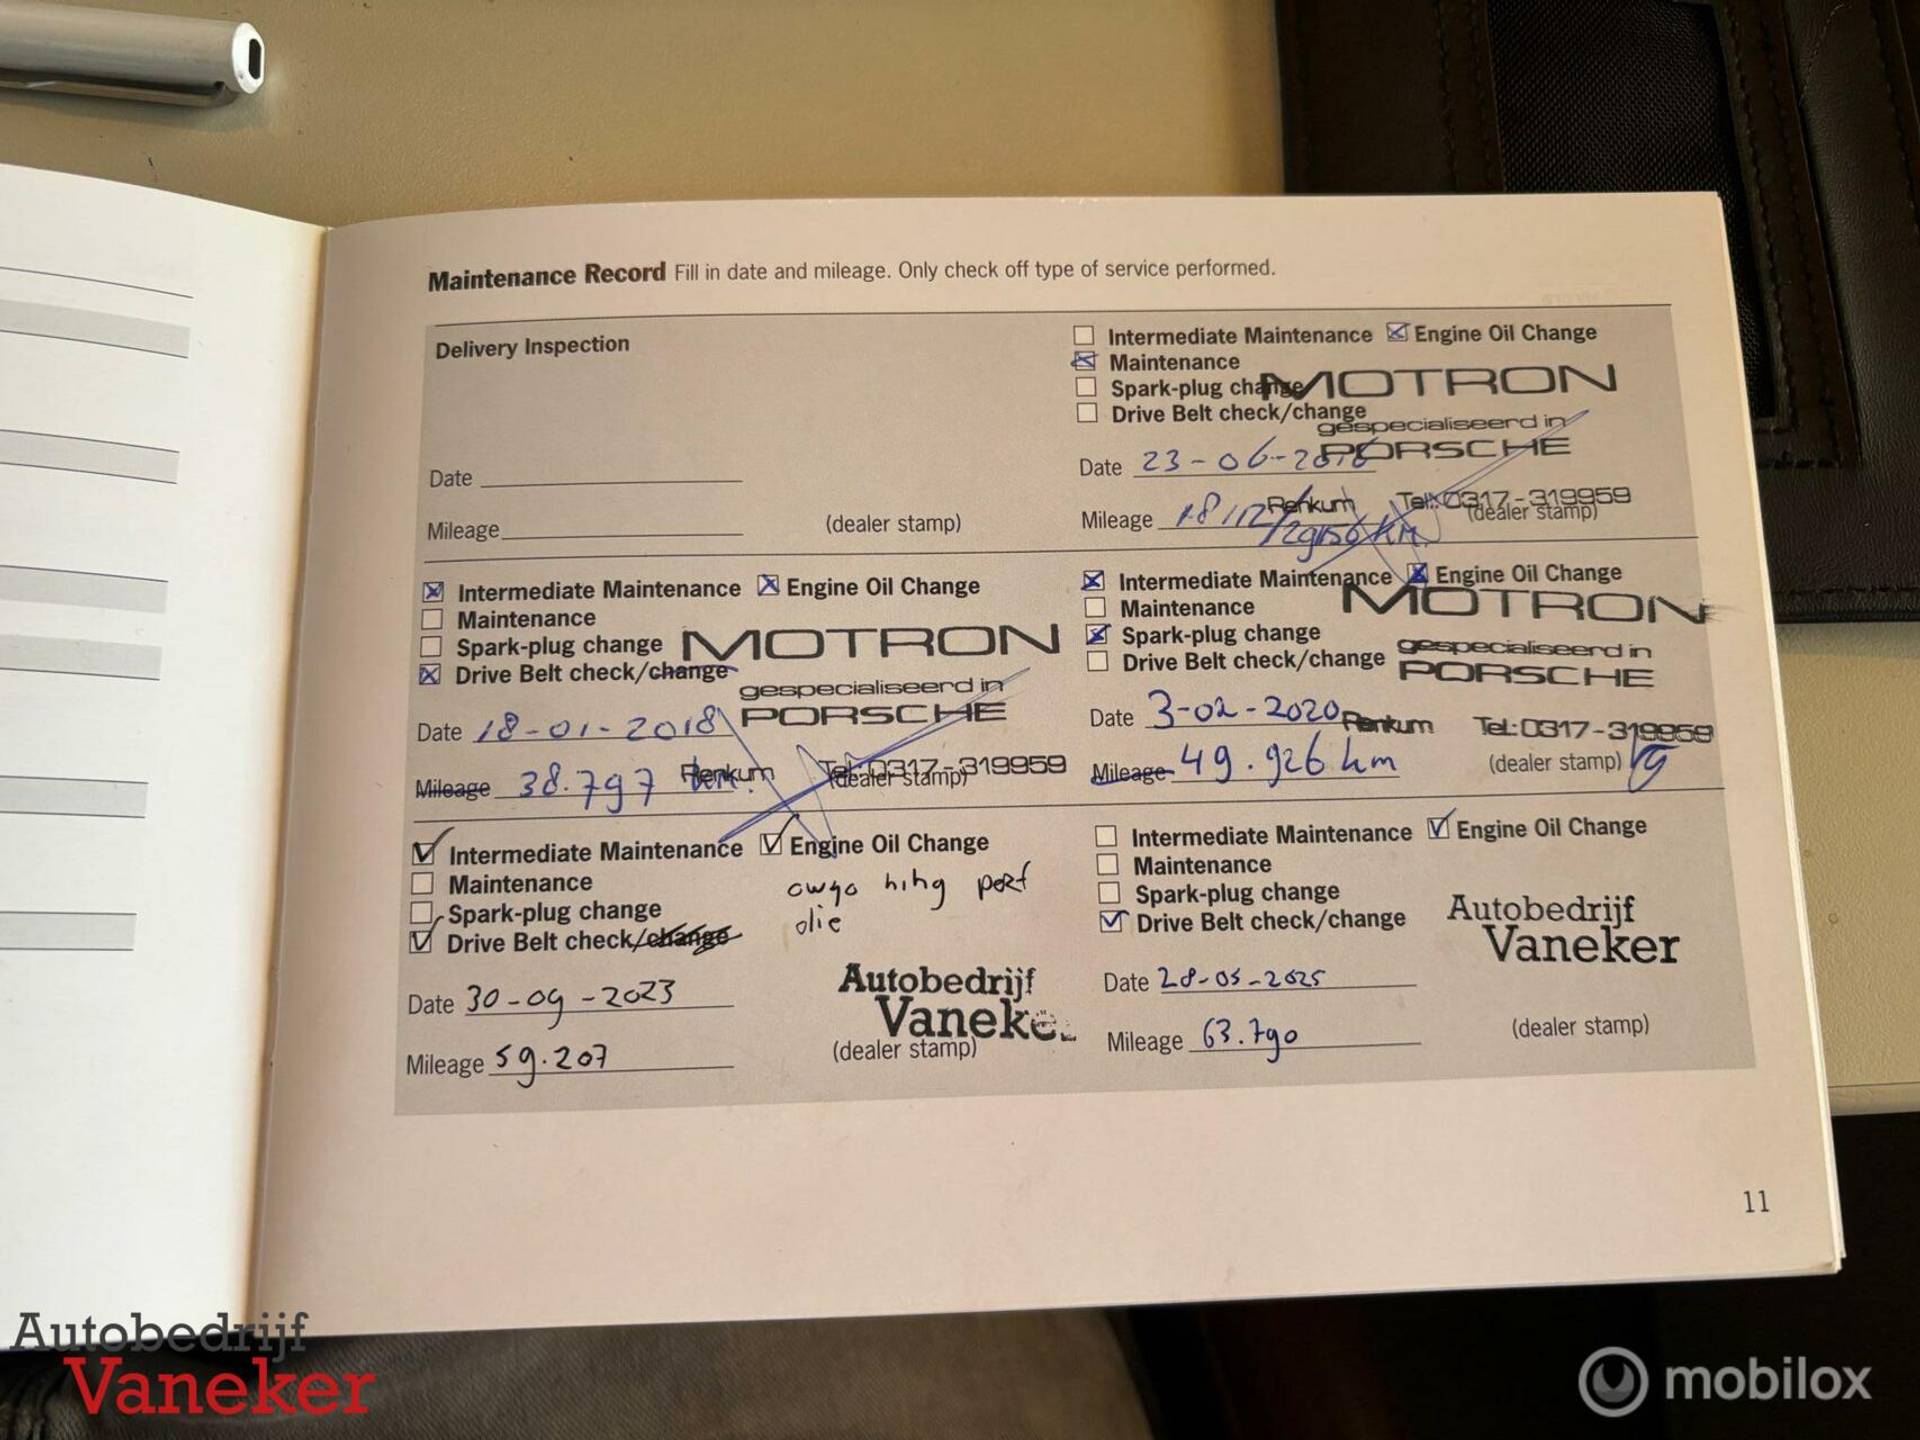 Maintenance Record Fill in date and mileage. Only check off type of service performed.
Delivery Inspection
Date
Mileage
(dealer stamp)
Intermediate Maintenance Engine Oil Change
Maintenance
Spark-plug change
Drive Belt check/change
MOTRON
gespecialiseerd in
PORSCHE
Renkum Tel: 0317-319959
Date 23-06-2016
Mileage
(dealer stamp)
Intermediate Maintenance Engine Oil Change
Maintenance
Spark-plug change
Drive Belt check/change
MOTRON
gespecialiseerd in
PORSCHE
Renkum Tel: 0317-319959
Date 18-01-2018
Mileage 38.797 km.
(dealer stamp)
Intermediate Maintenance Engine Oil Change
Maintenance
Spark-plug change
Drive Belt check/change
MOTRON
gespecialiseerd in
PORSCHE
Renkum Tel: 0317-319959
Date 3-02-2020
Mileage 49.926 km
(dealer stamp)
Intermediate Maintenance Engine Oil Change
Maintenance
Spark-plug change
Drive Belt check/change
olie
Autobedrijf
Vaneke
Date 30-09-2023
Mileage 59.207
(dealer stamp)
Intermediate Maintenance Engine Oil Change
Maintenance
Spark-plug change
Drive Belt check/change
Autobedrijf
Vaneker
Date 28-05-2025
Mileage 63.790
(dealer stamp)
11
Autobedrijf
Vaneker
mobilox